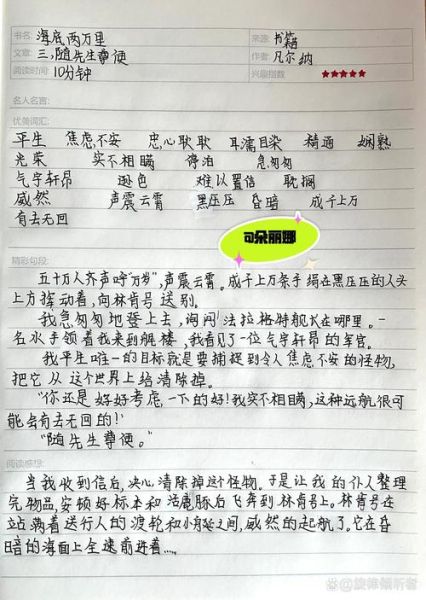 书名: 海底两万里 来源: 书籍
文章: 三、随先生尊便 作者: 凡尔纳
阅读时间: 10分钟 兴趣指数 ★★★★★
名人名言:
优美词汇:
平生 焦虑不安 忠心耿耿 耳濡目染 精通 娴熟
光荣 实不相瞒 停泊 急匆匆
气宇轩昂 逊色 难以置信 耽搁
威然 声震云霄 黑压压 昏暗 成千上万
有去无回
句朵丽娜
精彩句段:
五十万人齐声呼“万岁”,声震云霄。成千上万条手绢在黑压压的人头
上方挥动着,向林肯号送别。
我急匆匆地登上去,询问法拉格特舰长在哪里。一
名水手领着我来到艉楼,我看见了一位气宇轩昂的军官。
我平生唯一的目标就是要捕捉到令人焦虑不安的怪物,
把它从这个世界上给清除掉。
“你还是好好考虑一下的好!我实不相瞒,这种远航很可
能会有去无回的!”
“随先生尊便。”
阅读感想:
当我收到信后,决心清除掉这个怪物。于是让我的仆人整理
完物品,安顿好标本和活鹿豚后飞奔到林肯号上。林肯号在
站满着送行人的渡轮和小艇之间,威然的起航了。它在昏
暗的海面上全速前进着……